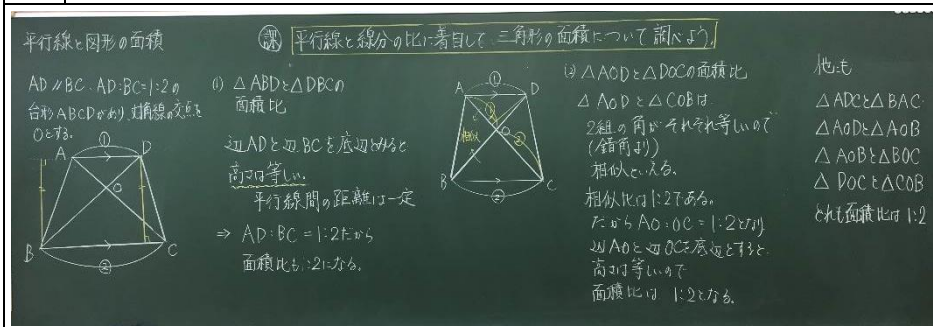 平行線と図形の面積
課 平行線と線分の比に着目して、三角形の面積について調べよう。
AD//BC、AD:BC=1:2の
台形ABCDがあり、対角線の交点を
Oとする。
①
A
D
O
B
C
②
(1) △ABDと△DBCの
面積比
辺ADと辺BCを底辺とみると
高さは等しい。
平行線間の距離は一定
⇒ AD:BC=1:2だから
面積比も1:2になる。
①
A
D
①
O
②
相似
B
C
②
(2) △AODと△DOCの面積比
△AODと△COBは
2組の角がそれぞれ等しいので
(錯角より)
相似といえる。
相似比は1:2である。
だからAO:OC=1:2となり
辺AOと辺OCを底辺とすると、
高さは等しいので
面積比は 1:2となる。
他にも
△ADCと△BAC
△AODと△AOB
△AOBと△BOC
△DOCと△COB
どれも面積比は1:2